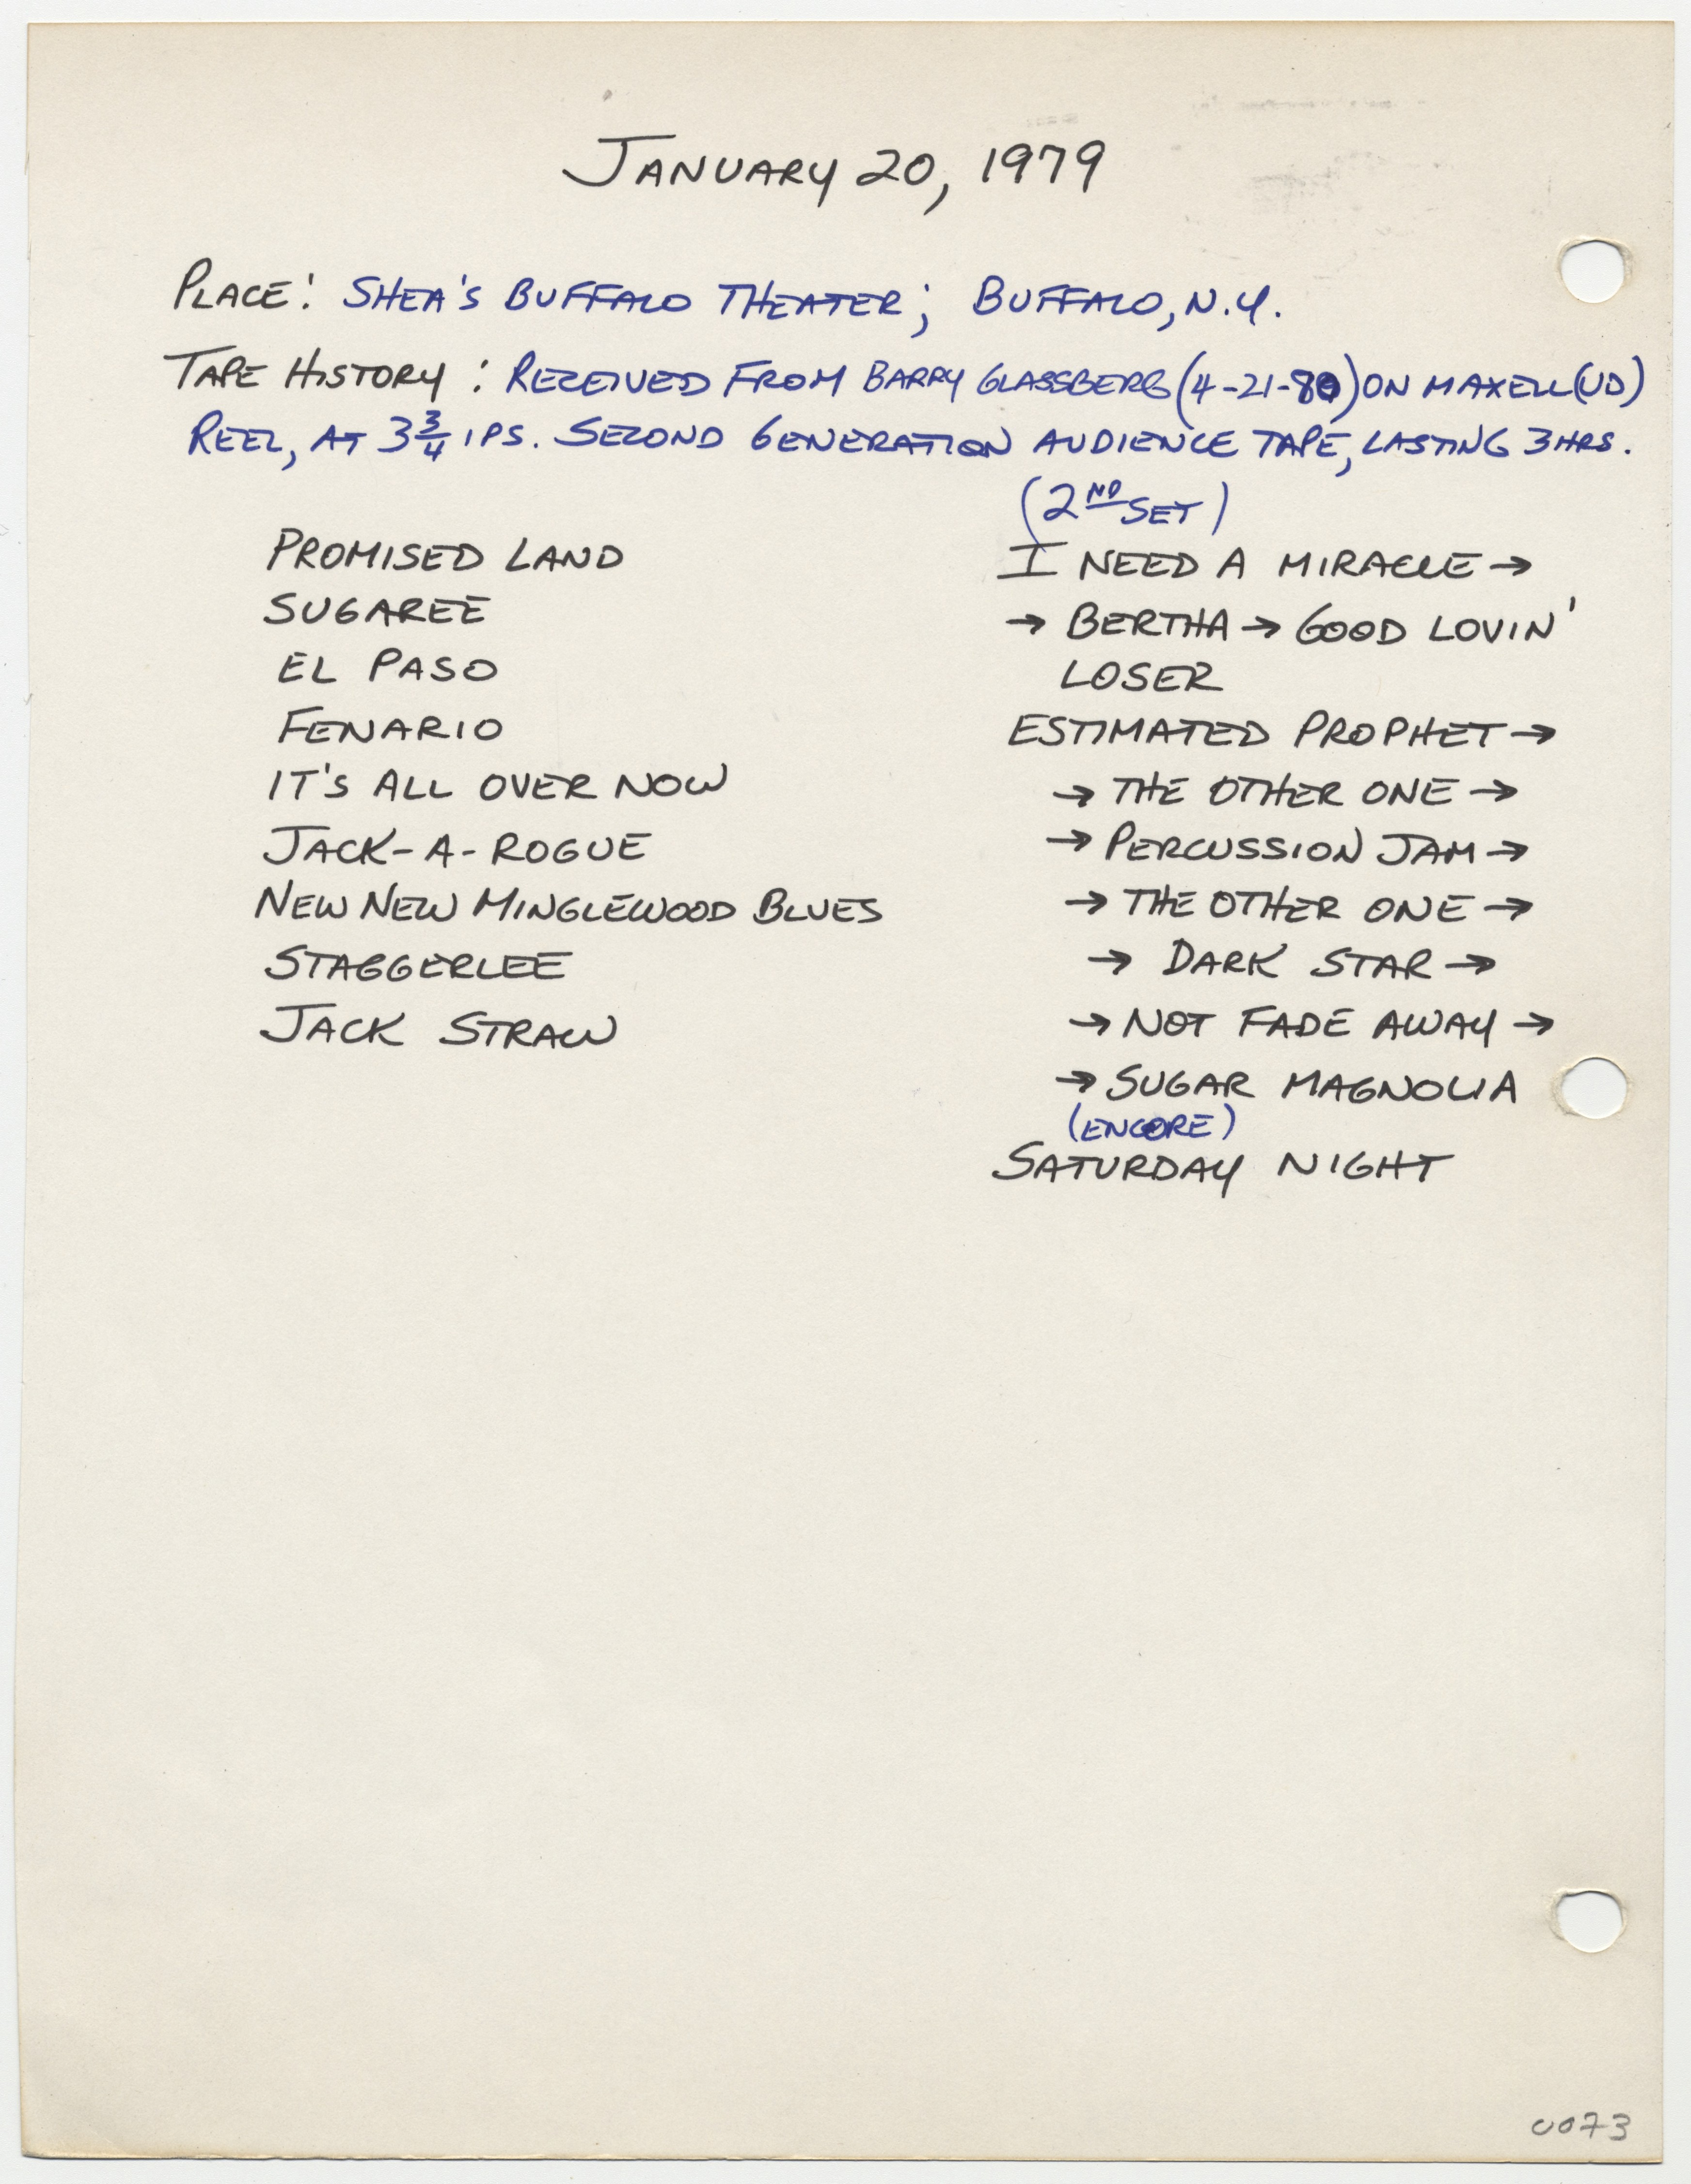 JANUARY 20, 1979
PLACE: SHEA'S BUFFALO THEATER; BUFFALO, N.Y.
TAPE HISTORY: RECEIVED FROM BARRY GLASSBERG (4-21-80) ON MAXELL (UD)
REEL, AT 3 3/4 IPS. SECOND GENERATION AUDIENCE TAPE, LASTING 3 HRS.
PROMISED LAND
SUGAREE
EL PASO
FENARIO
IT'S ALL OVER NOW
JACK-A-ROGUE
NEW NEW MINGLEWOOD BLUES
STAGGERLEE
JACK STRAW
(2ND SET)
I NEED A MIRACLE →
→ BERTHA → GOOD LOVIN'
LOSER
ESTIMATED PROPHET →
→ THE OTHER ONE →
→ PERCUSSION JAM →
→ THE OTHER ONE →
→ DARK STAR →
→ NOT FADE AWAY →
→ SUGAR MAGNOLIA
(ENCORE)
SATURDAY NIGHT
0073